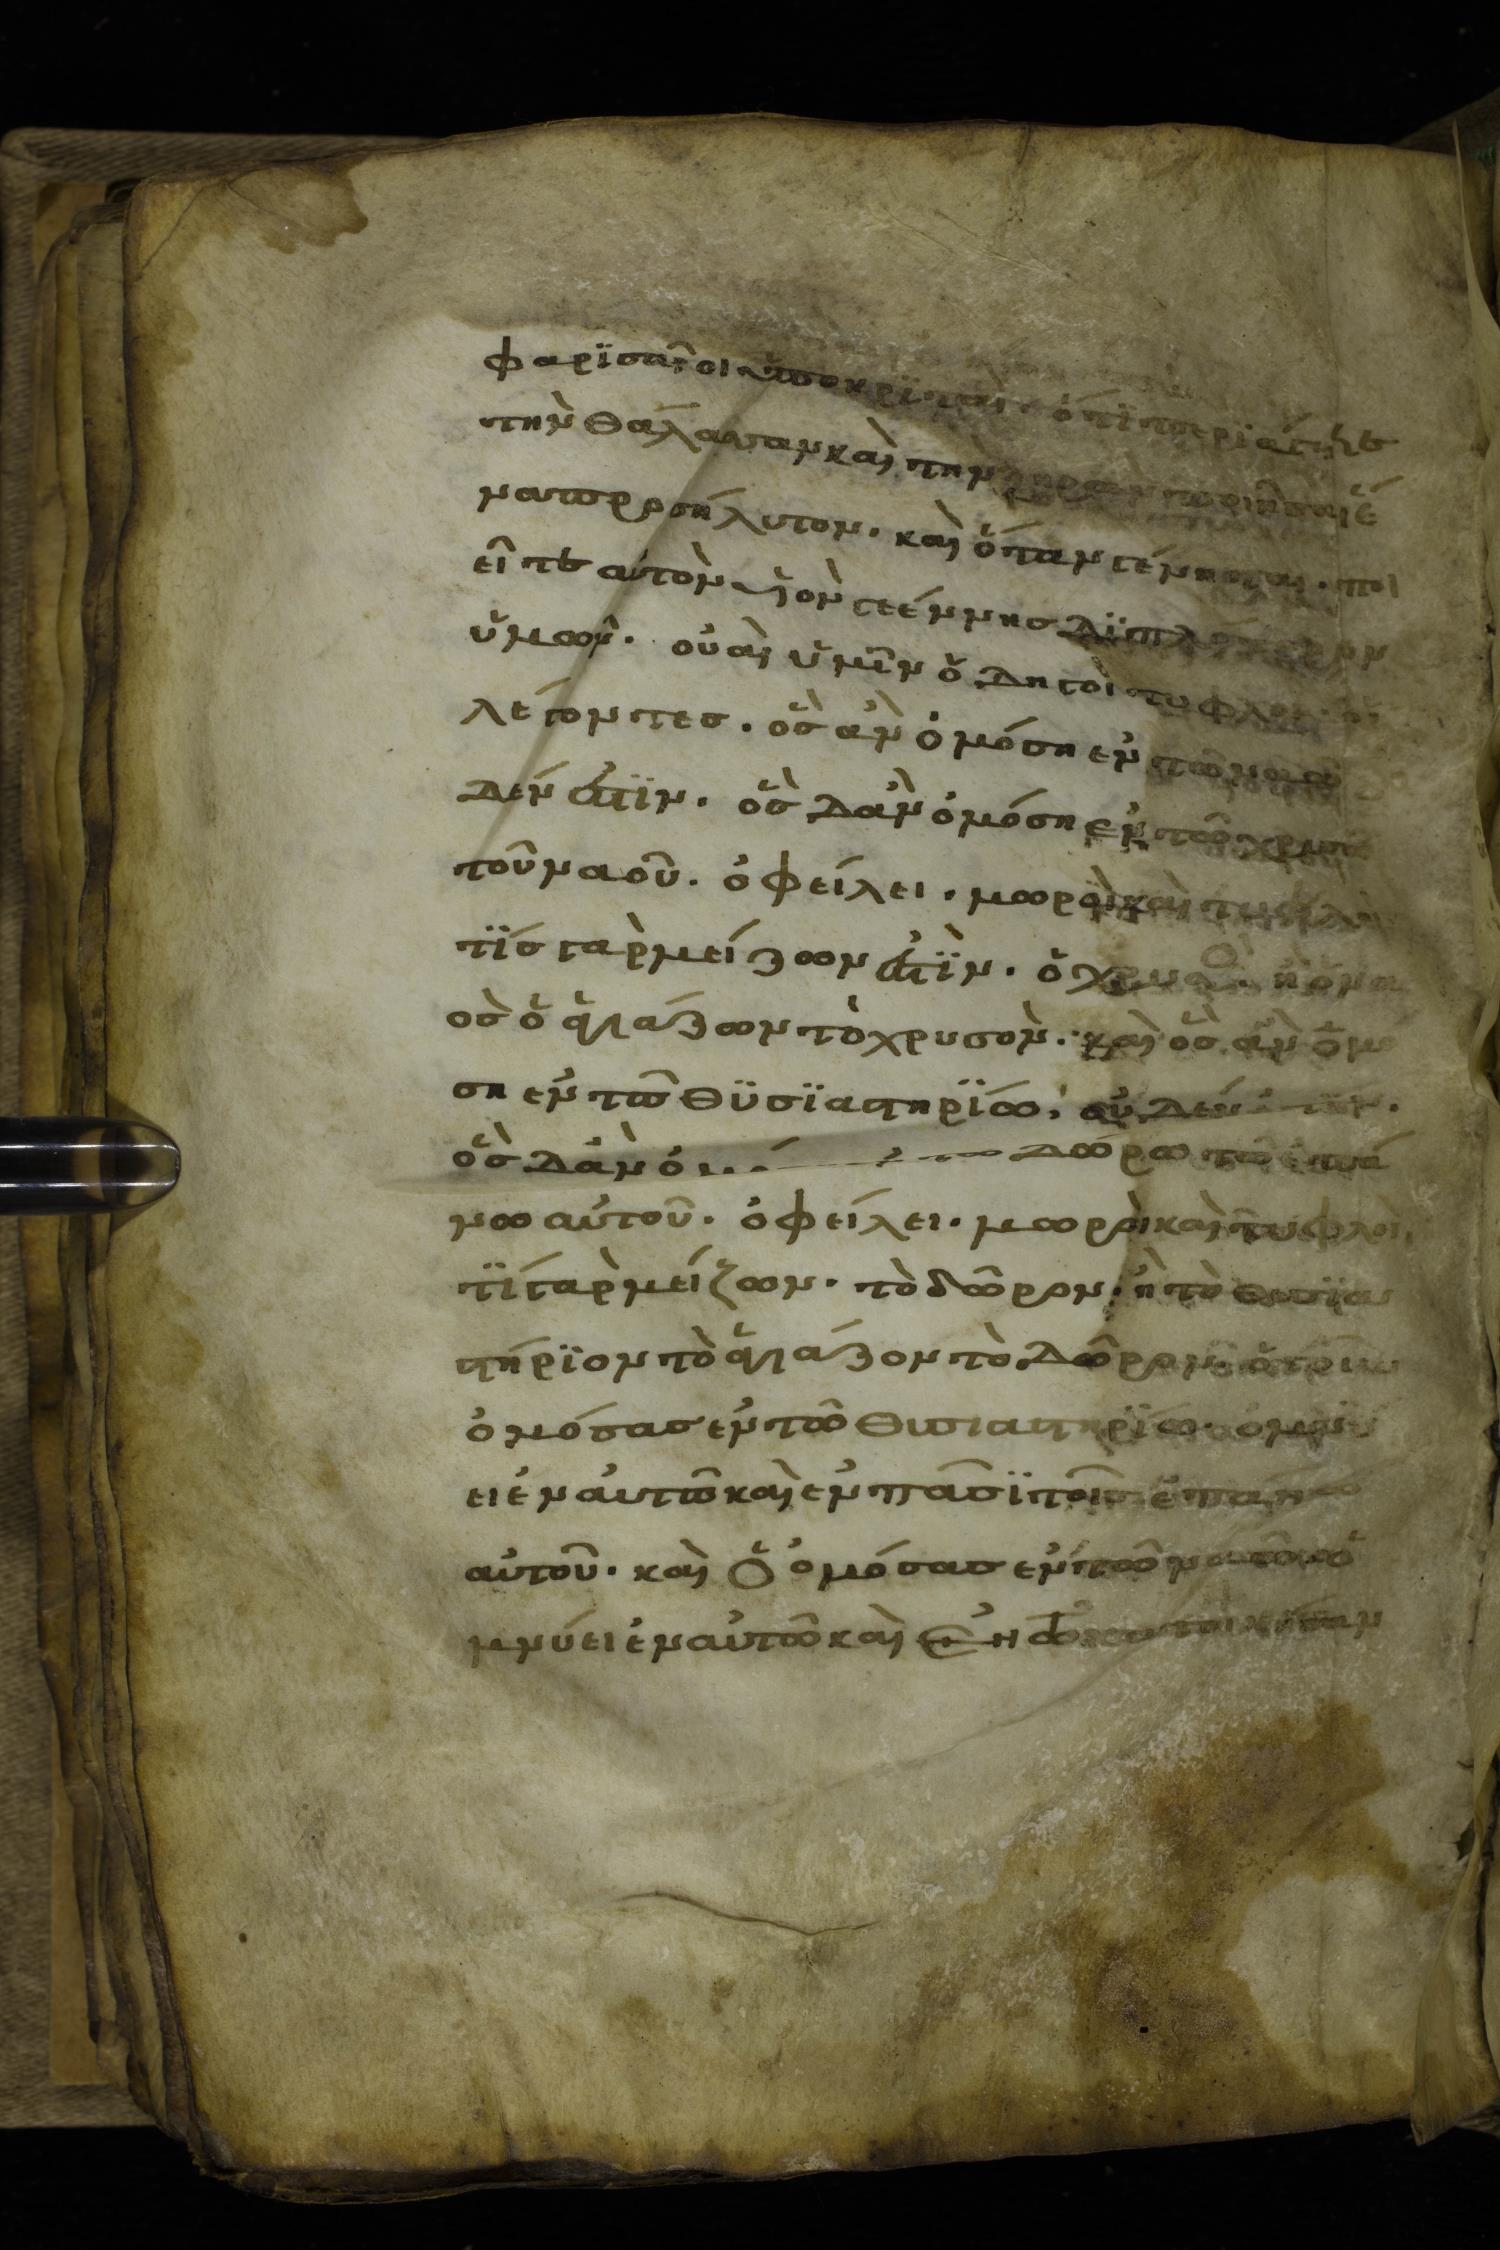 φαρϊσαῖοι ὑποκρϊται· ὅτι περϊάγετε
τὴν θάλασσαν καὶ τὴν ξηρὰν ποιῆσαι ἕ
να προσήλυτον· καὶ ὅταν γένηται· ποι
εῖτε αυτὸν ϋἱὸν γεέννης δϊπλότερον
ὑμῶν· οὐαὶ ὑμῖν ὁδηγοὶ τυφλοὶ οἱ
λέγοντες· ὃς ἂν ὀμόση ἐν τῶ ναῶ
δέν ἐστϊν· ὃς δἂν ὀμόση ἐν τῶ χρυσῶ
τοῦ ναοῦ· ὀφείλει· μωροὶ καὶ τυφλοὶ
τϊς γὰρ μείζων ἐστϊν· ὁ χρυσὸς· ἢ ὁ να
ὸς ὁ ἁγιάζων τὸ χρυσὸν· καὶ ὃς ἂν ὀμό
ση ἐν τῶ θϋσϊαστηρϊω, οὐδέν ἐστϊν·
ὃς δἂν ὀμόση ἐν τῶ δώρω τῶ ἐπά
νω αὐτοῦ· ὀφείλει· μωροὶ καὶ τυφλοὶ,
τϊ γὰρ μείζων· τὸ δῶρον· ἢ τὸ θυσϊα
στήρϊον τὸ ἁγιάζον τὸ δῶρον· ὁ οὖν
ὀμόσας ἐν τῶ θυσιαστηρϊω· ὀμνύ
ει ἐν αυτῶ καὶ ἐν πᾶσϊ τοῖς ἐπάνω
αὐτοῦ· καὶ ὁ ὀμόσας ἐν τῶ ναῶ ὀ
μνύει ἐν αὐτῶ καὶ ἐν τῶ κατοικήσαν